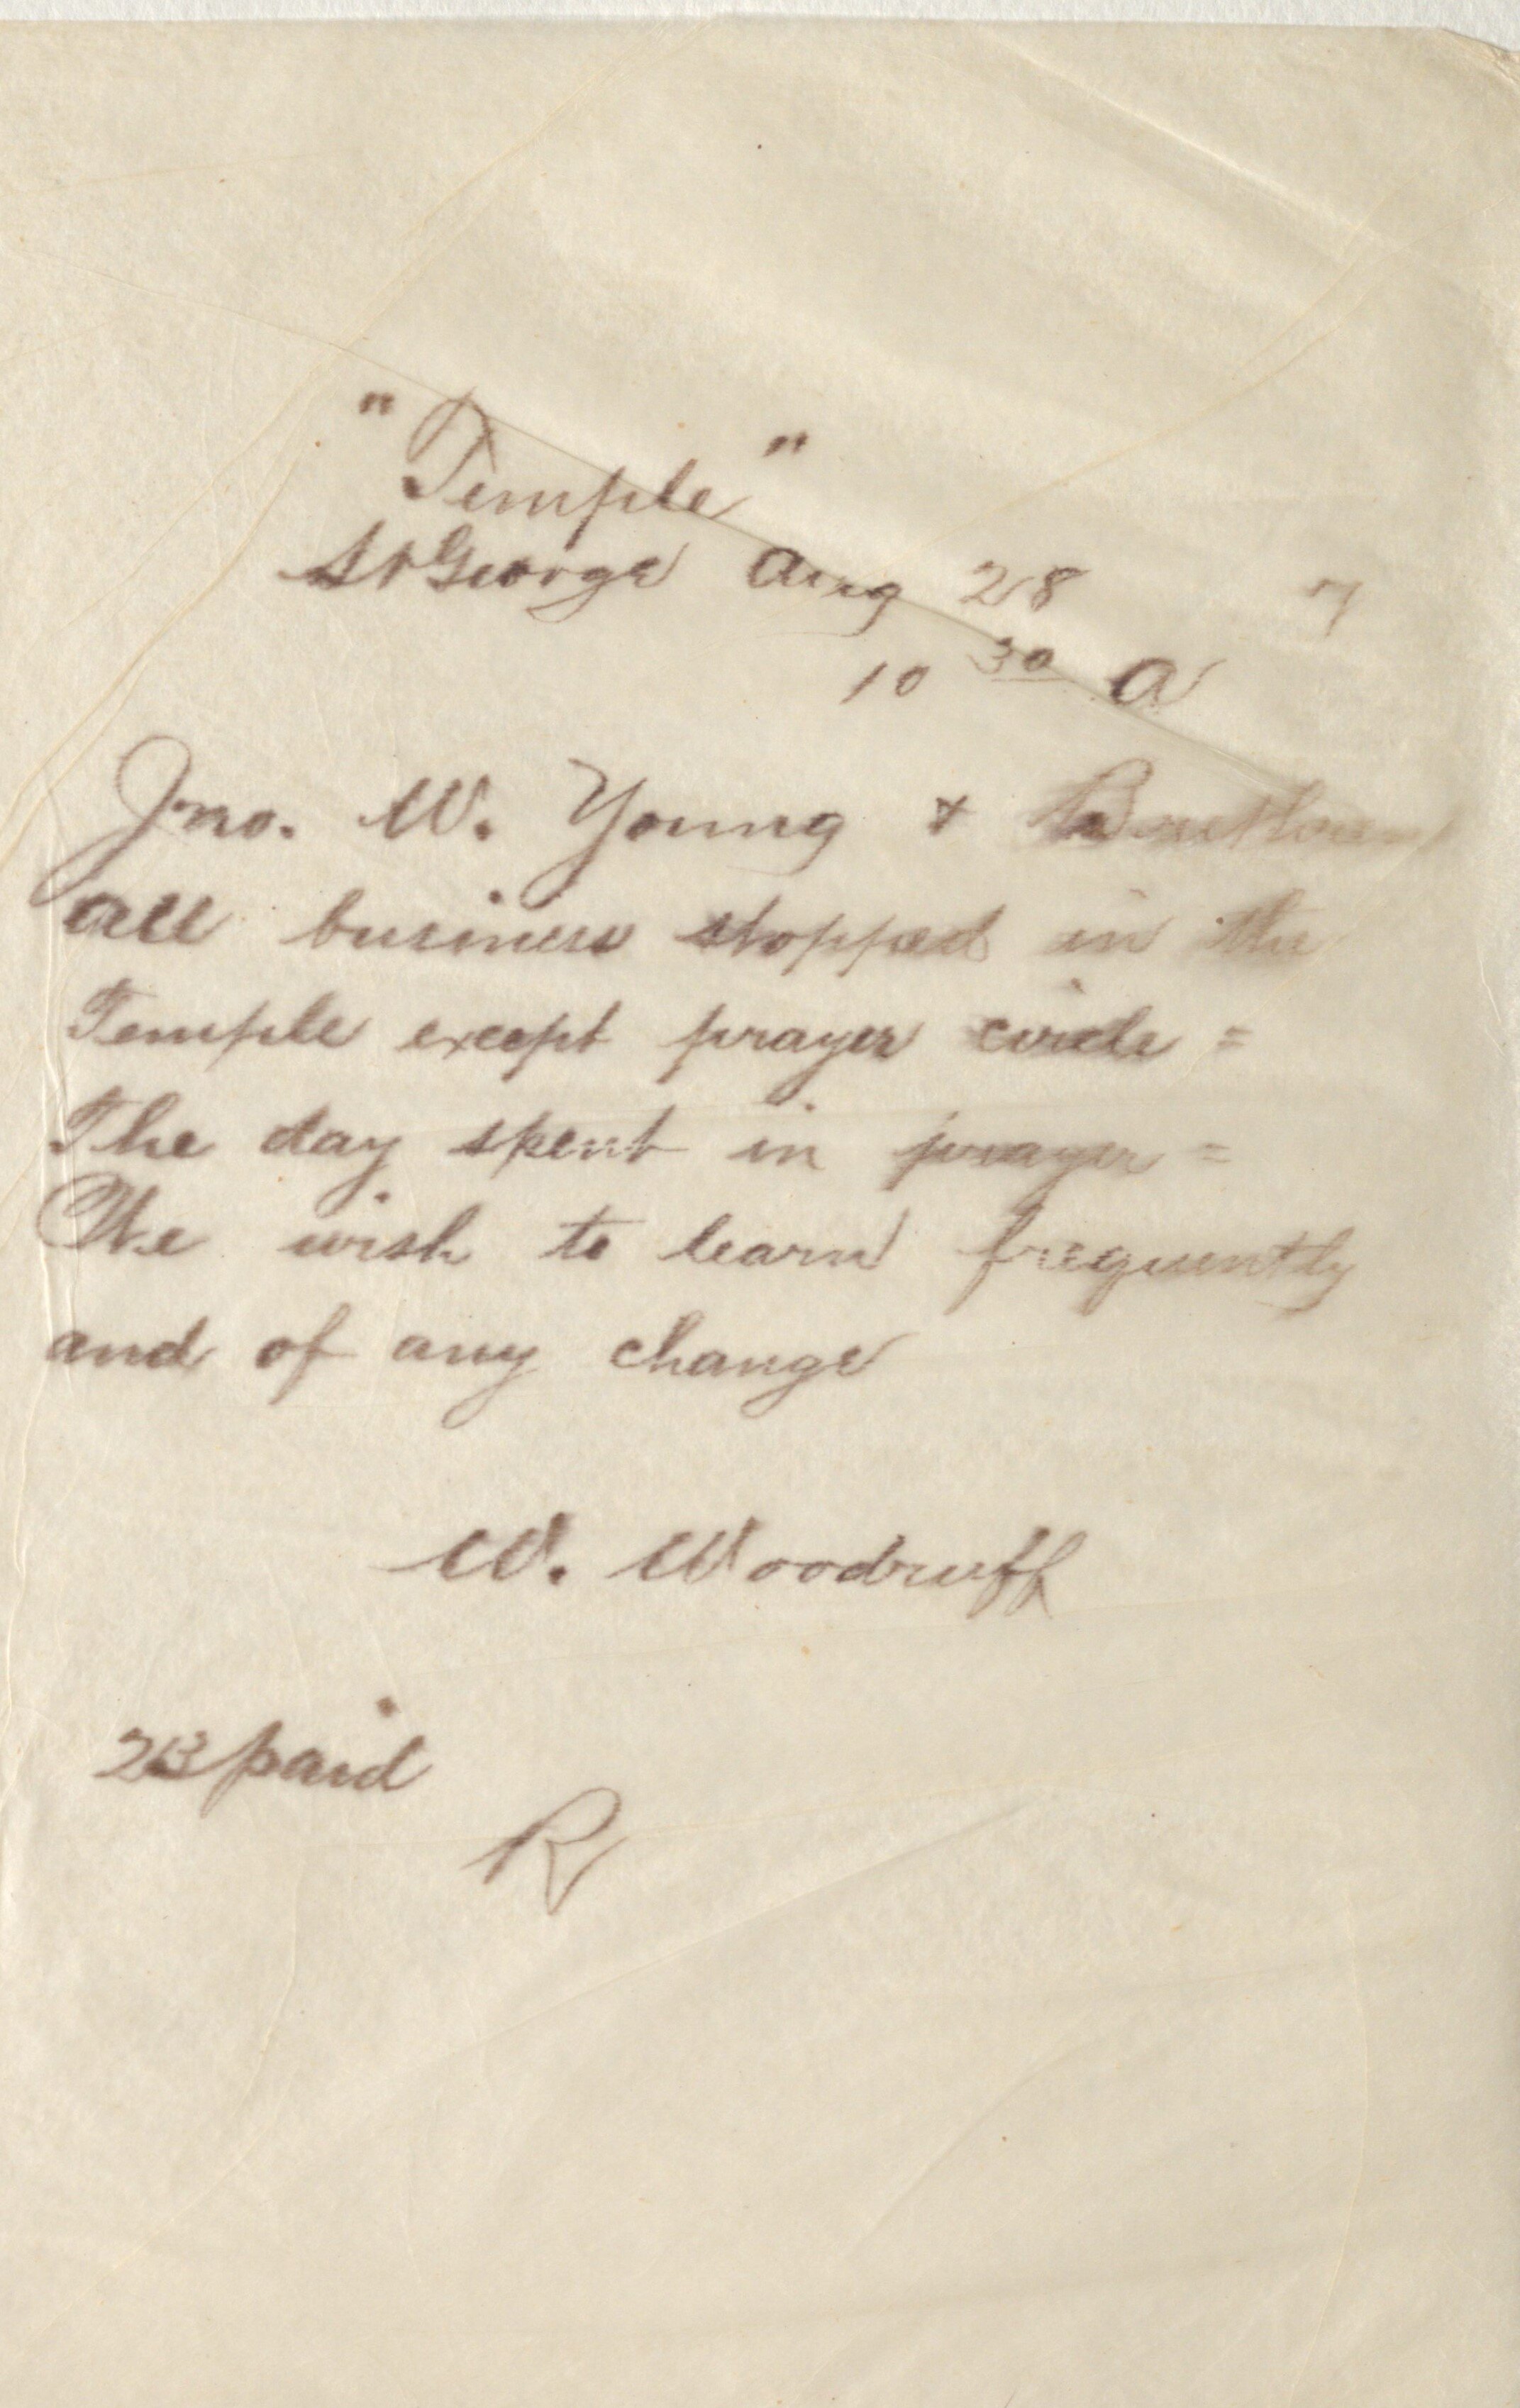 "Temple"
St George Aug 28 7
10 30 A
Jno. W. Young & Brethren
all business stopped in the
Temple except prayer circle =
The day spent in prayer =
We wish to learn frequently
and of any change
W. Woodruff
paid
R